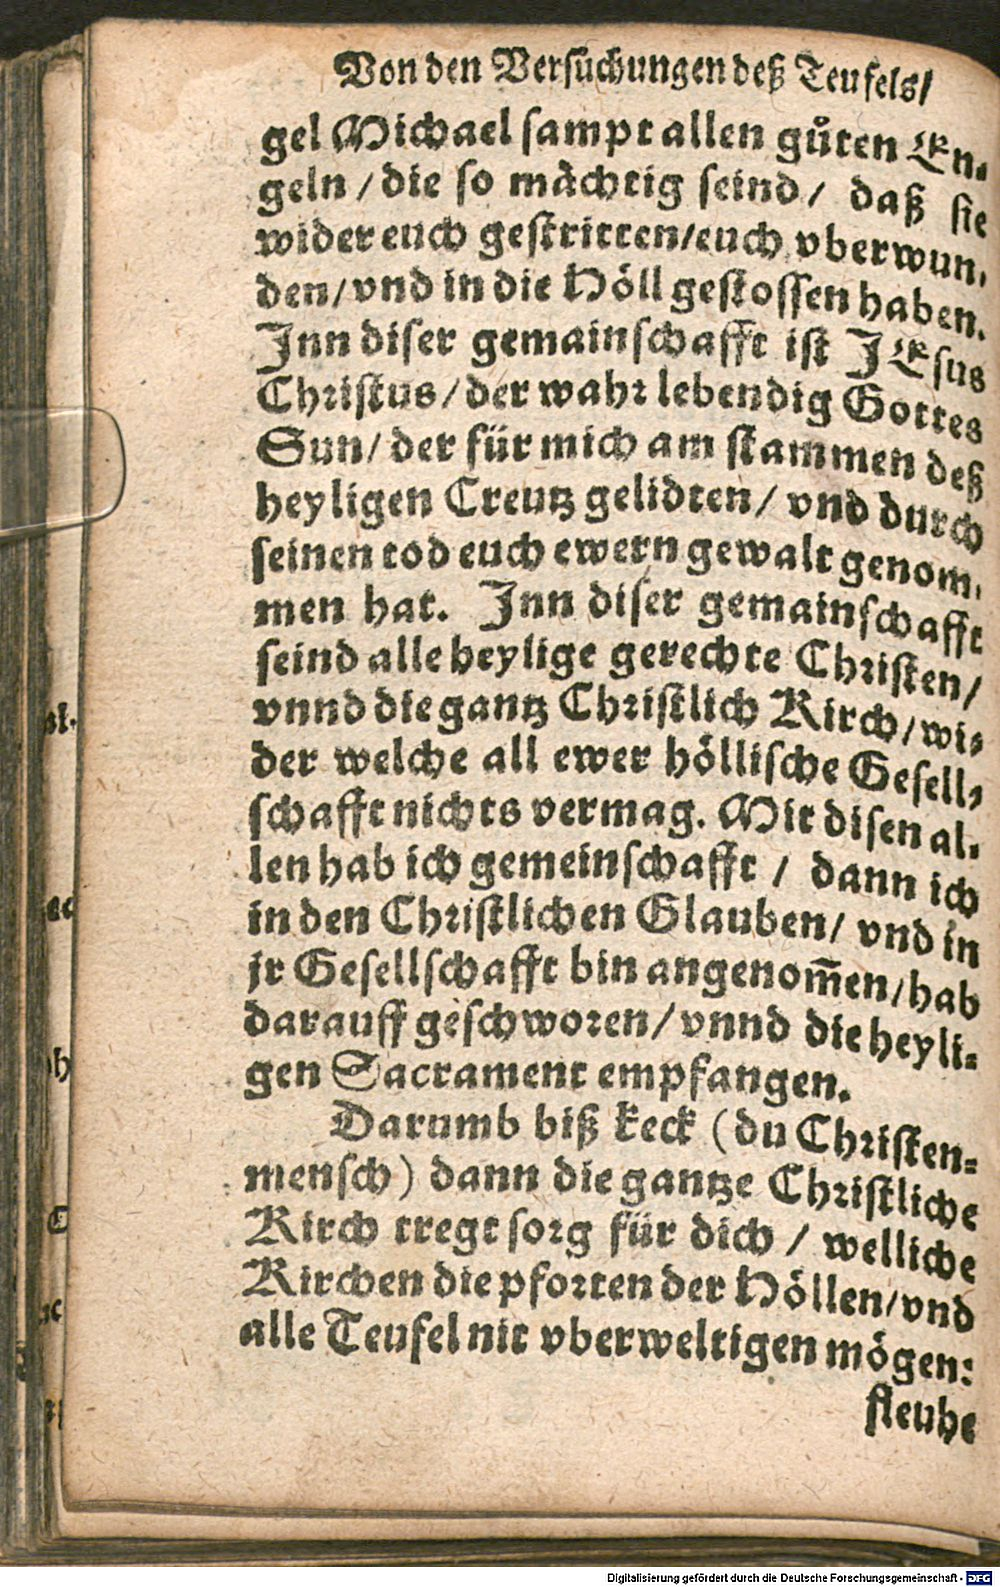 Von den Versuchungen deß Teufels/
gel Michael sampt allen gůten En-
geln / die so mächtig seind / daß sie
wider euch gestritten/euch vberwun-
den/vnd in die Höll gestossen haben.
Jnn diser gemainschafft ist JEsus
Christus / der wahr lebendig Gottes
Sun / der für mich am stammen deß
heyligen Creutz gelidten / vnd durch
seinen tod euch ewern gewalt genom-
men hat. Jnn diser gemainschafft
seind alle heylige gerechte Christen /
vnnd die gantz Christlich Kirch / wi-
der welche all ewer höllische Gesell-
schafft nichts vermag. Mit disen al-
len hab ich gemeinschafft / dann ich
in den Christlichen Glauben / vnd in
jr Gesellschafft bin angenom̅en/hab
darauff geschworen / vnnd die heyli-
gen Sacrament empfangen.
Darumb biß keck (du Christen-
mensch) dann die gantze Christliche
Kirch tregt sorg für dich / welliche
Kirchen die pforten der Höllen/vnd
alle Teufel nit vberweltigen mögen:
fleuhe
Digitalisierung gefördert durch die Deutsche Forschungsgemeinschaft - DFG